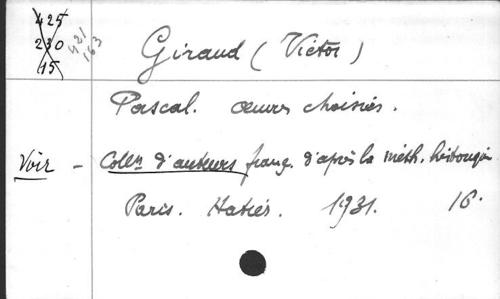 425
230
15
421
163
Giraud (Victor)
Pascal. œuvres choisies.
Voir - Collon d'auteurs franç. d'après la méth. historique
Paris. Hatier. 1931. 16.